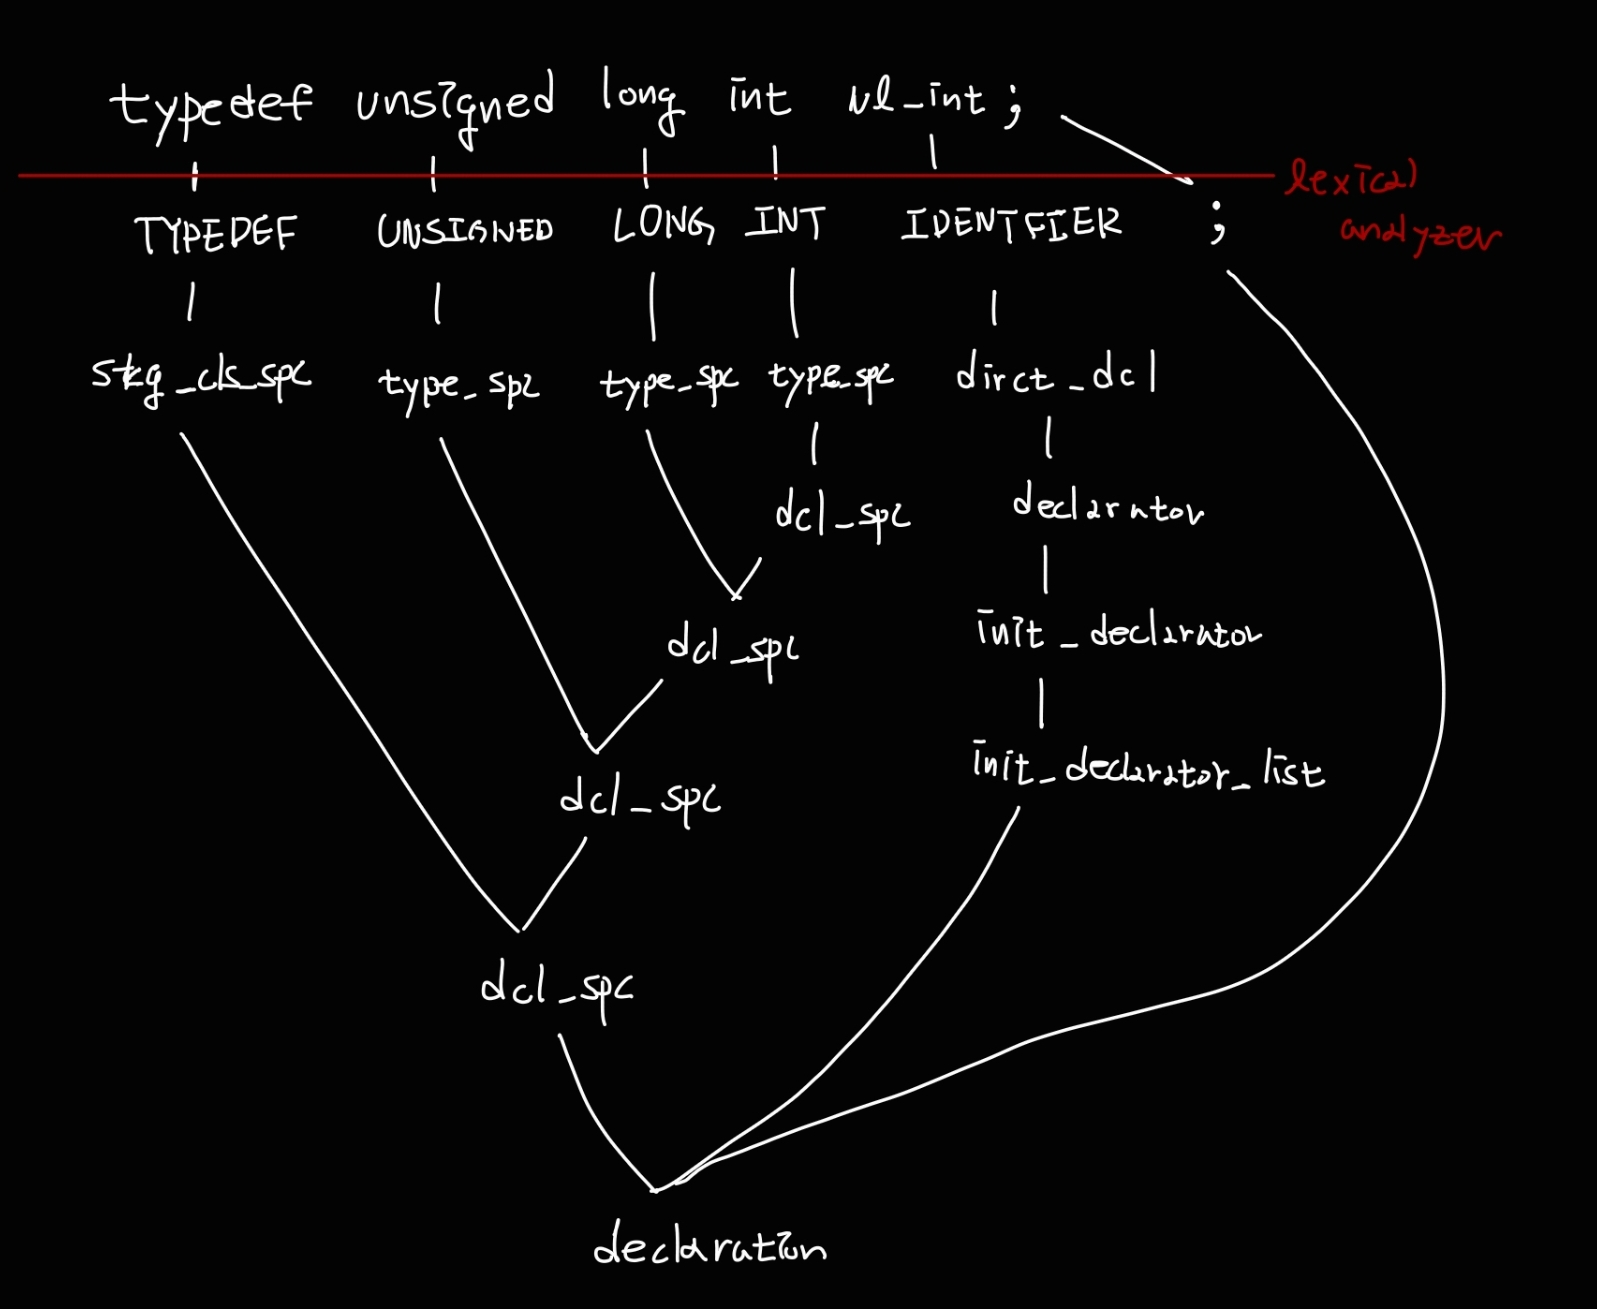 typedef unsigned long int ul_int;
lexical
analyzer
TYPEDEF UNSIGNED LONG INT IDENTFIER ;
stkg_cls_spc type_spc type_spc type_spc dirct_dcl
dcl_spc declarator
dcl_spc init_declarator
dcl_spc init_declarator_list
dcl_spc
declaration